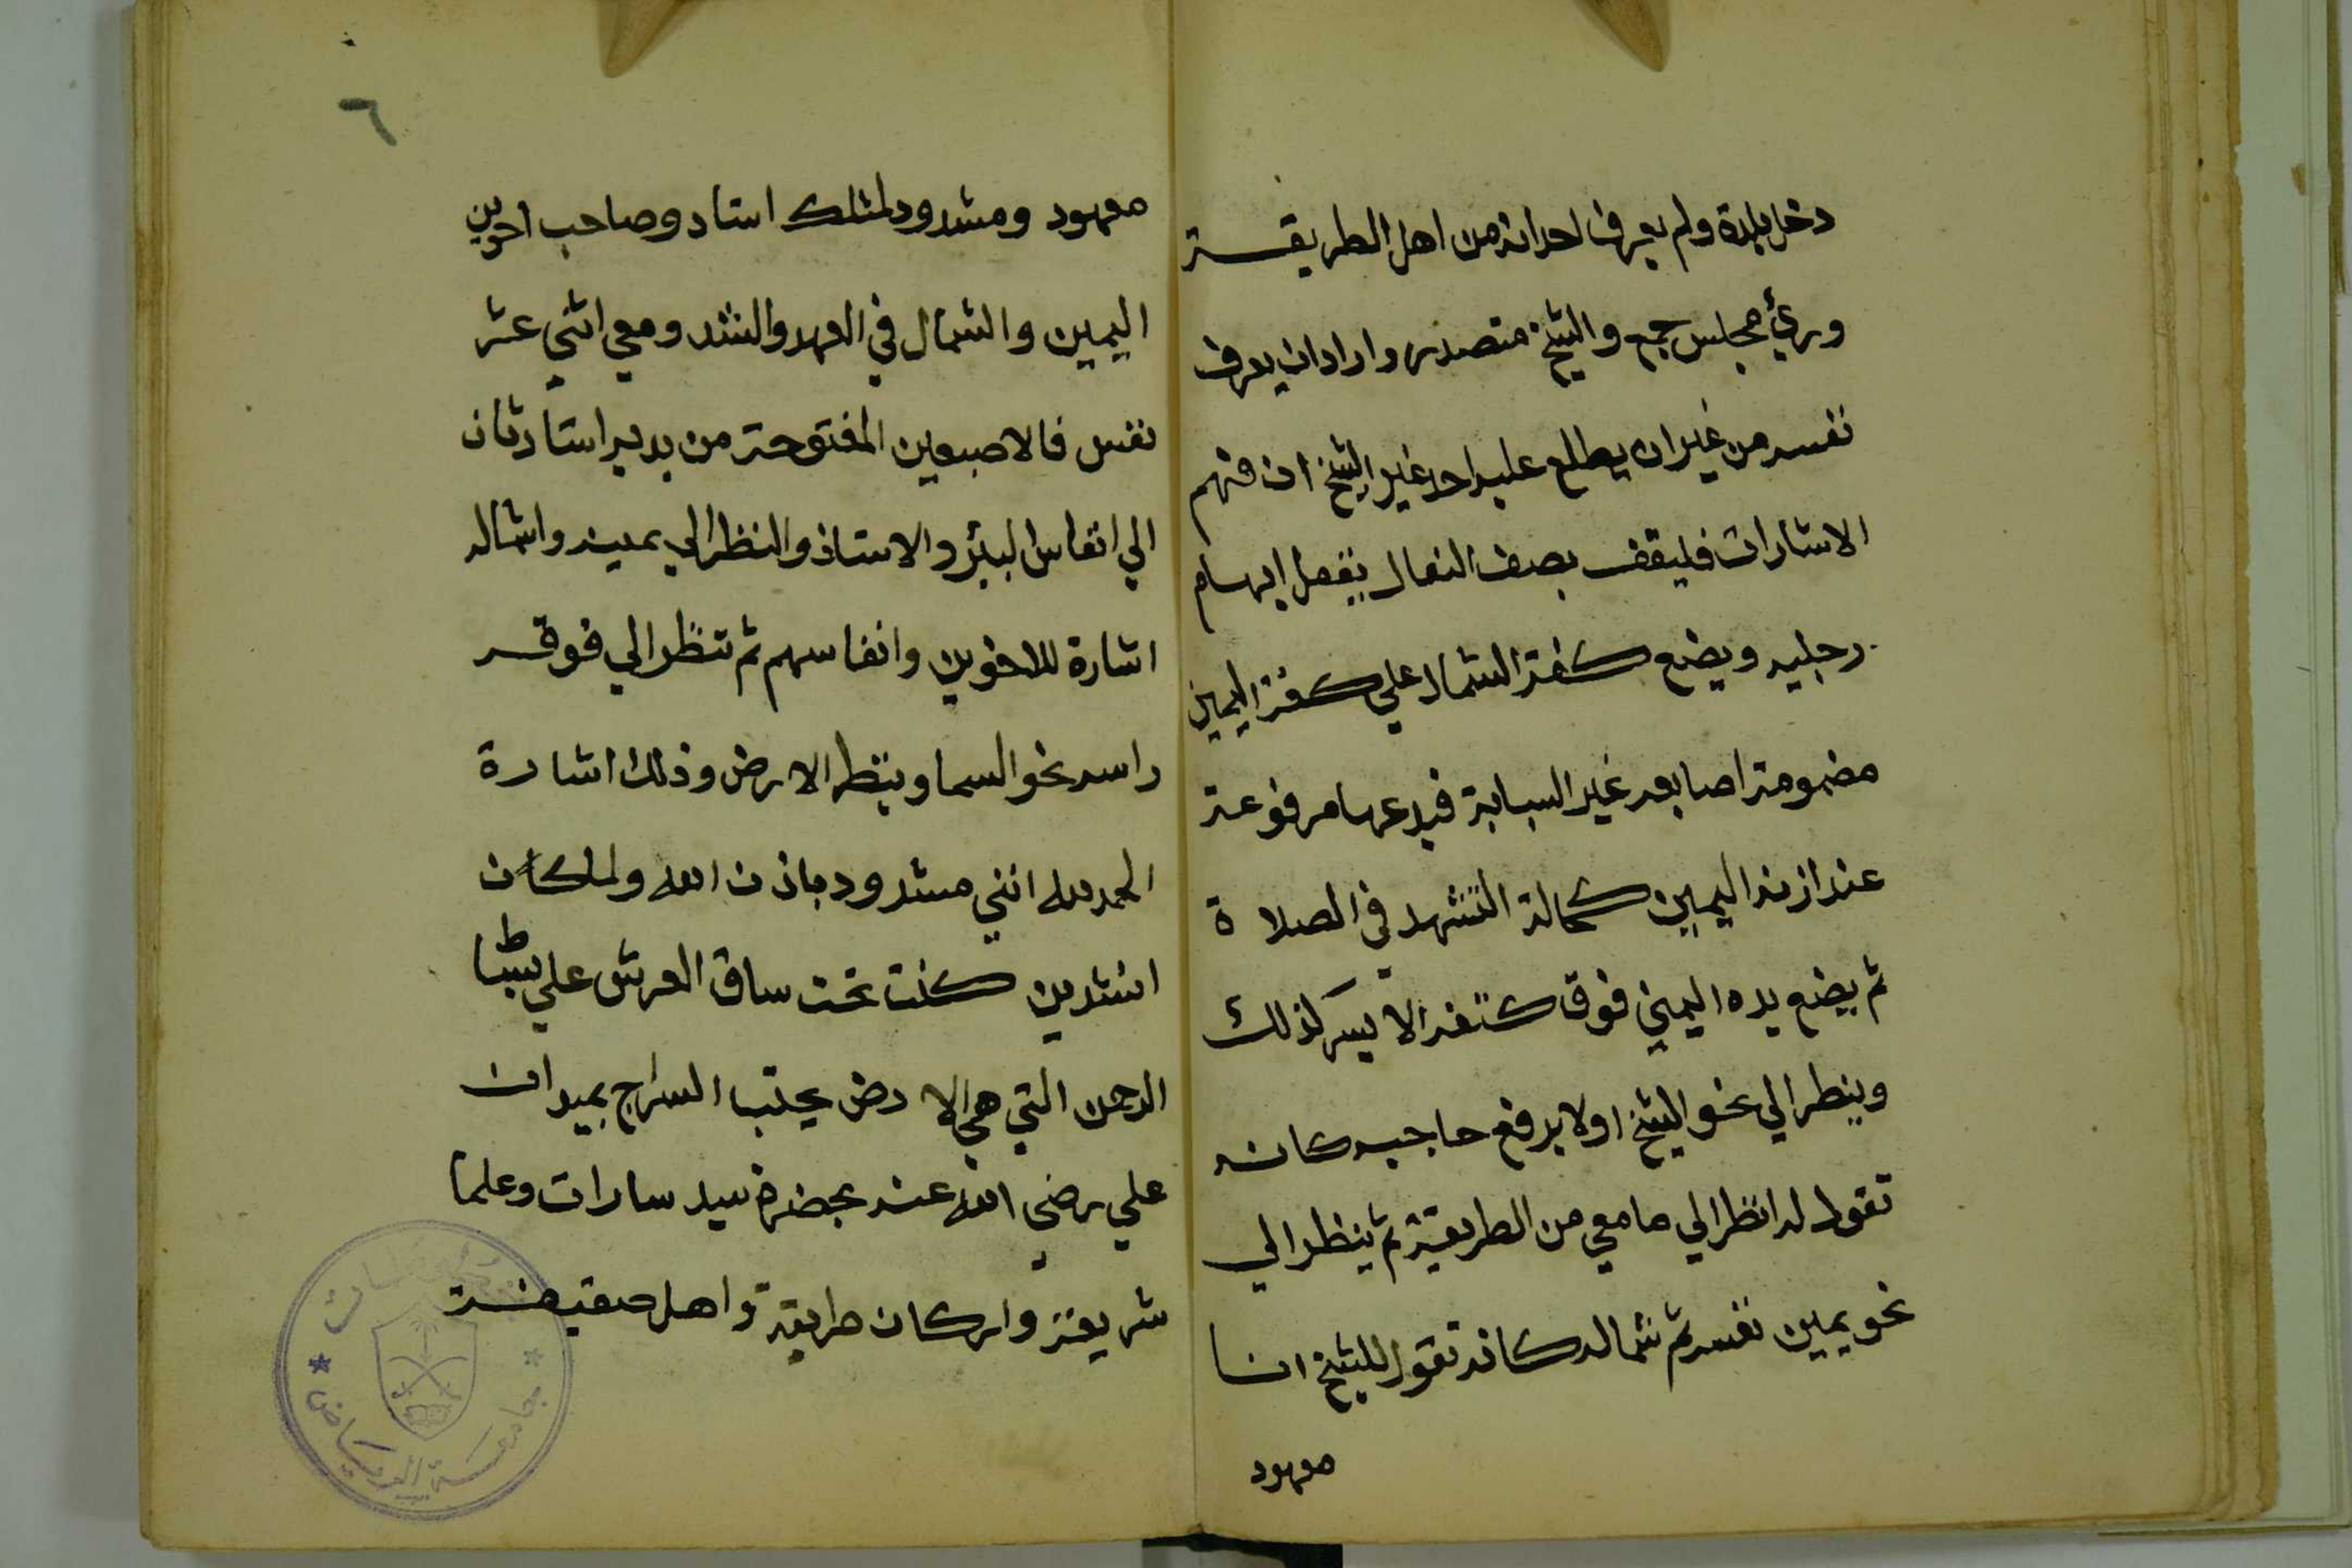 دخل بلدة ولم يعرف احد انه من اهل الطريقة
ورئ مجلس جمع والشيخ متصدر وارادان يعرف
نفسه من غيران يطلع عليه احد غير الشيخ ان فهم
الاشارات فليقف بصف النعال يقفل ابهام
رجليه ويضع كفة الشمال علي كفة اليمين
مضمومة اصابعه غير السبابة فيدعها مرفوعة
عند ازند اليمين كحالة التشهد في الصلاة
ثم يضع يده اليمين فوق كتفه الايسر كذلك
وينظر الي نحو الشيخ اولا يرفع حاجبه كانه
تقول له انظر الي ما معي من الطريقة ثم ينظر الي
نحو يمين نفسه ثم شماله كانه تقول للشيخ انا
معهود
٦
معهود ومشدود لمثلك استاد وصاحب اخوين
اليمين والشمال في العهد والشد ومعي اثني عشر
نفس فالاصبعين المفتوحة من يديه استارتان
الي انفاس البئر والاستاذ والنظر الي يمينه واشماله
اشارة للاخوين وانفاسهم ثم تنظر الي فوقه
راسه نحو السما وينظر الارض وذلك اشارة
الحمد لله انني مشدود باذن الله ولما كان
انشدين كنت تحت ساق العرش علي بساط
الرحمن التي هي الارض بجنب السراج بميدان
علي رضي الله عنه بحضرة سيد سادات وعلما
شريعة واركان طريقة واهل حقيقة
جامعة الرياض